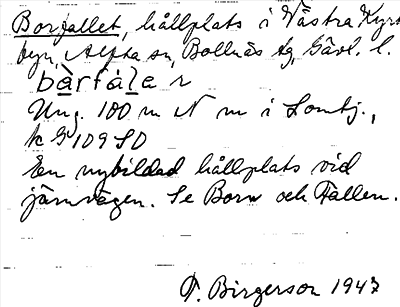 Borfallet, hållplats i Västra Kyrk
byn, Alfta sn, Bollnäs tg, Gävl. l.
bàrfàlạ r
Ung. 100 m N m i Lomtj.,
k G 109 SO
En nybildad hållplats vid
järnvägen. Se Born och Fallen.
F. Birgerson 1947